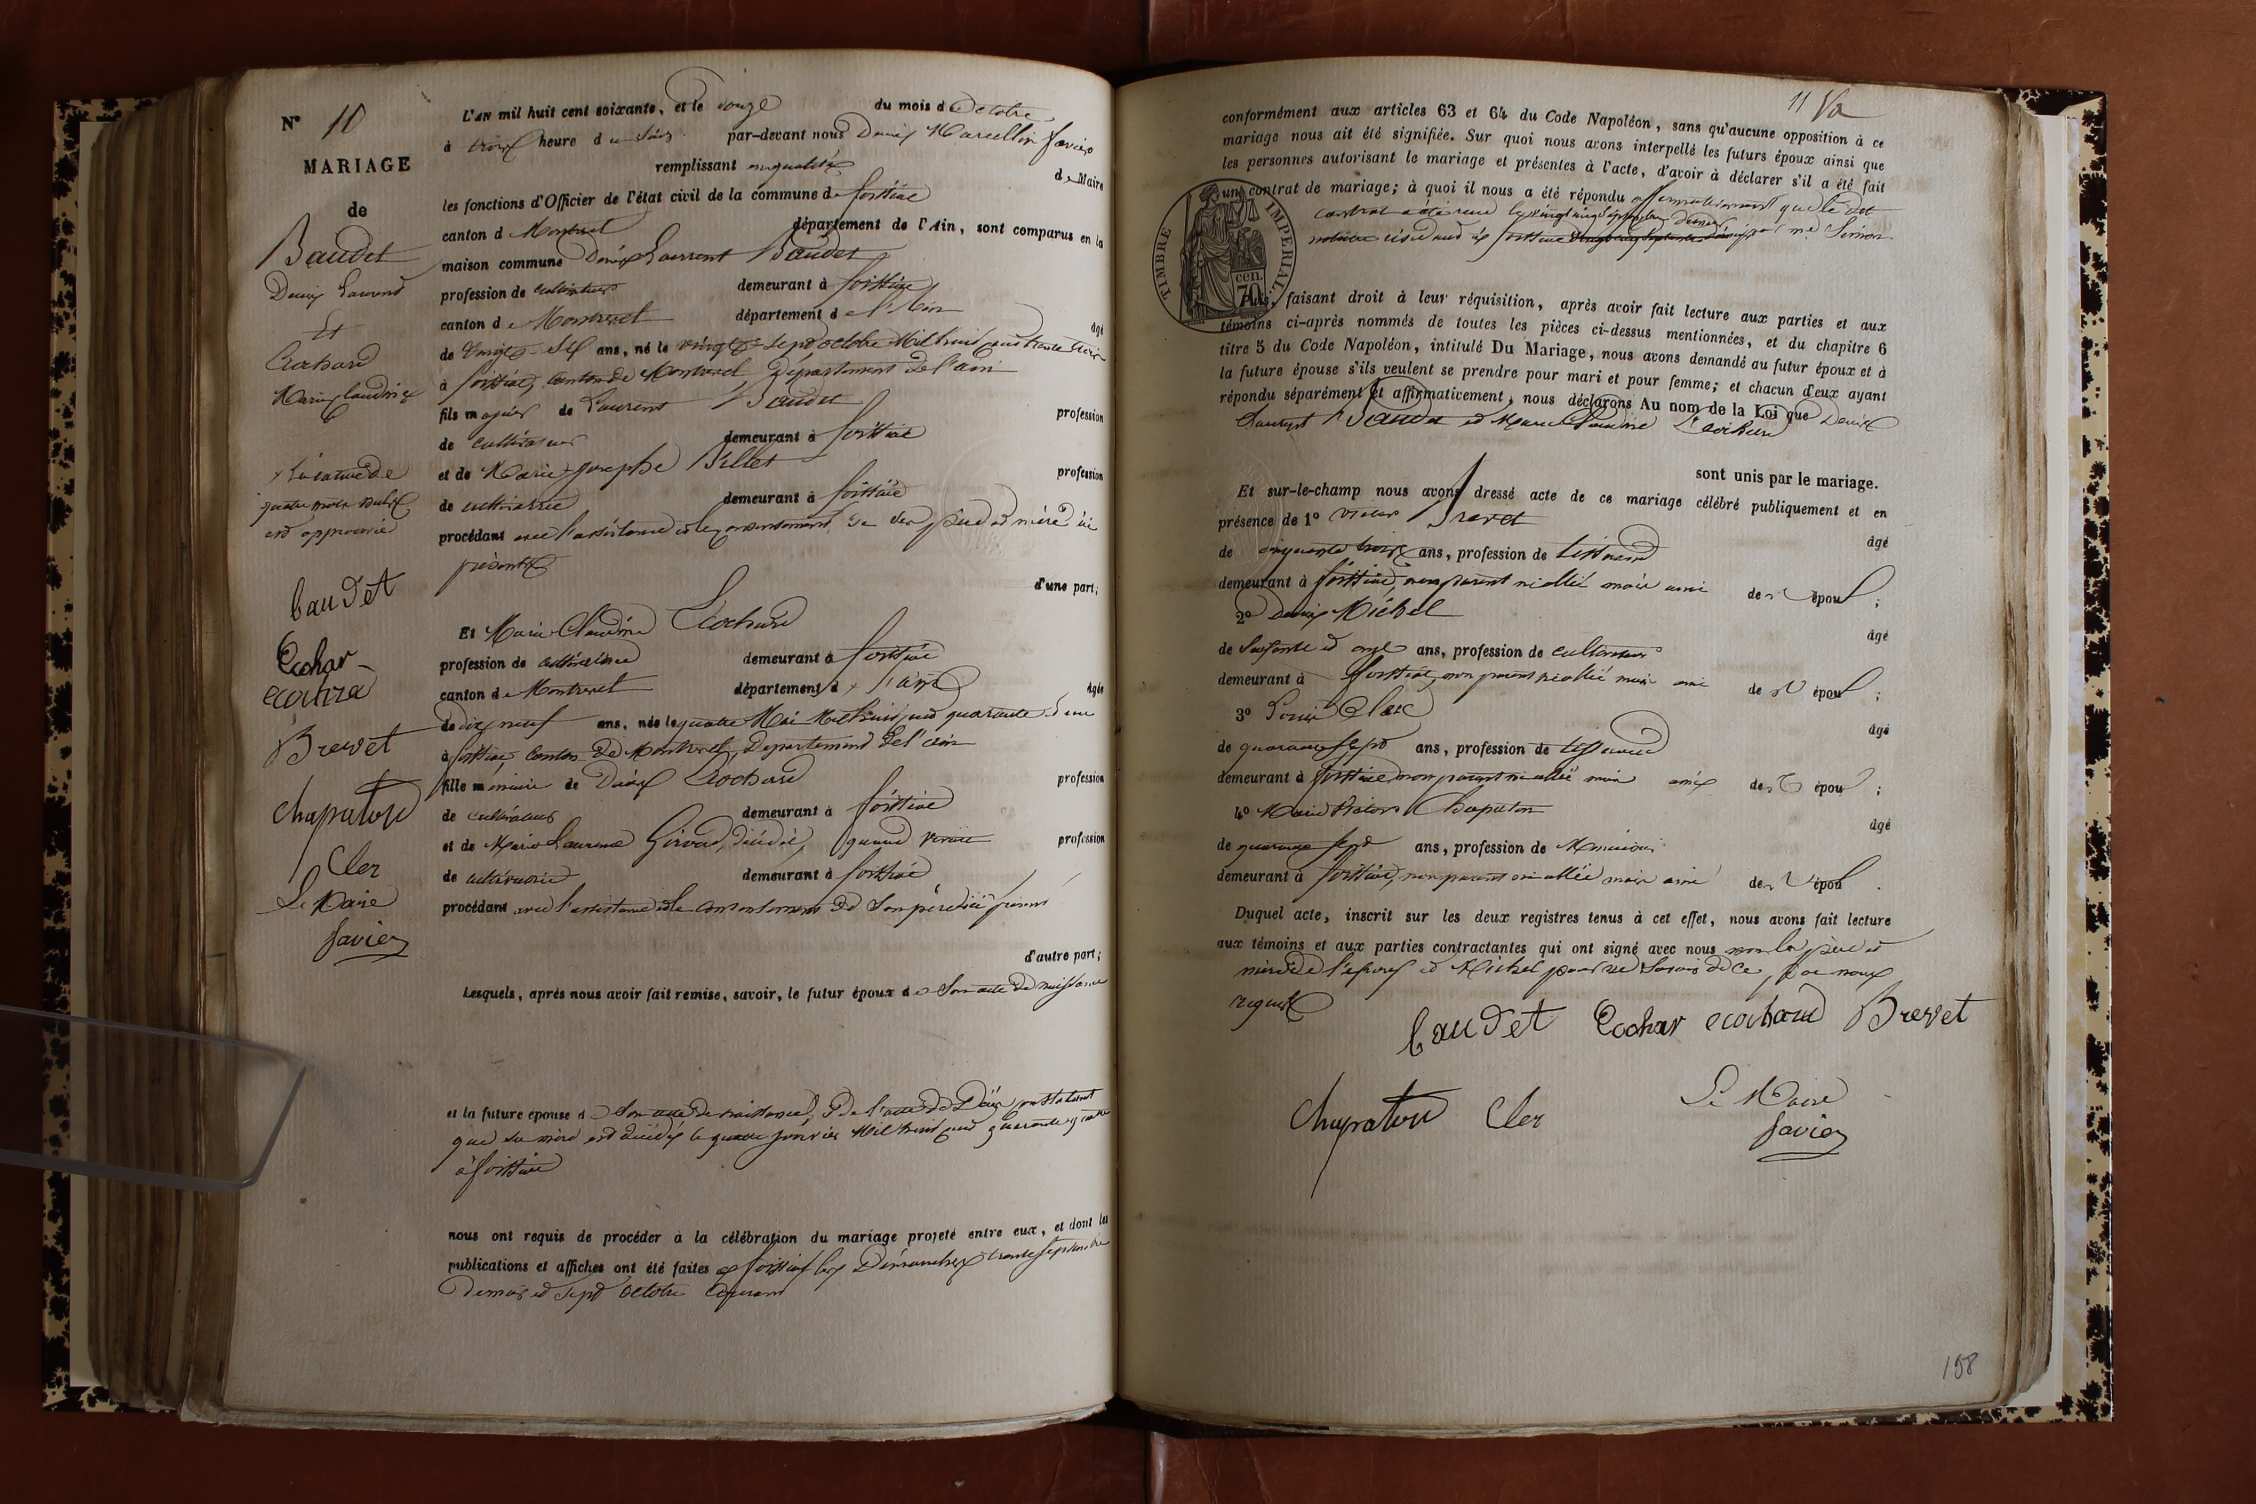 N° 10
MARIAGE
de
Baudet
Denis Laurent
Et
Ecochard
Marie Claudine
quatre mots nuls
est approuvée
baudet
Ecochar
Brevet
Chapaton
Cler
Le Maire
Favier
L'AN mil huit cent soixante, et le douze du mois d'octobre
à trois heure du soir par-devant nous Denis Marcellin Favier
remplissant en qualité de Maire
les fonctions d'Officier de l'état civil de la commune de foissiat
canton d Montrevel département de l'Ain, sont comparus en la
maison commune Denis Laurent Baudet
profession de cultivateur demeurant à foissiat
canton de Montrevel département de l'Ain âgé
de vingt-six ans, né le vingt-sept octobre mil huit cent trente trois
à foissiat, canton de Montrevel département de l'ain
fils majeur de Laurent Baudet profession
de cultivateur demeurant à foissiat
et de Marie-Josephe Billet profession
de cultivatrice demeurant à foissiat
procédant avec l'assistance et le consentement de ses père et mère ici
présents
d'une part;
Et Marie Claudine Ecochard
profession de cultivatrice demeurant à foissiat
canton de Montrevel département de l'ain âgée
de dix neuf ans, née le quatre Mai Mil huit cent quarante et un
à foissiat, canton de Montrevel, département de l'ain
fille mineure de Denis Ecochard profession
de cultivateur demeurant à foissiat
et de Marie Laurence décédée, quand vivait profession
de cultivatrice demeurant à foissiat
procédant avec l'assistance et le consentement de son père ici présent
d'autre part;
Lesquels, après nous avoir fait remise, savoir, le futur époux de son acte de naissance
et la future épouse de son acte de naissance, de l'acte de décès constatant
que sa mère est décédée le quatre janvier Mil huit cent quarante quatre
à foissiat
nous ont requis de procéder à la célébration du mariage projeté entre eux, et dont les
publications et affiches ont été faites à foissiat les Dimanches trente septembre
dernier et sept octobre courant
11
conformément aux articles 63 et 64 du Code Napoléon, sans qu'aucune opposition à ce
mariage nous ait été signifiée. Sur quoi nous avons interpellé les futurs époux ainsi que
les personnes autorisant le mariage et présentes à l'acte, d'avoir à déclarer s'il a été fait
un contrat de mariage; à quoi il nous a été répondu affirmativement que le dit
contrat a été reçu le vingt cinq septembre dernier
notaire résidant à foissiat vingt cinq septembre dernier par me
TIMBRE IMPÉRIAL
70 cen.
Puis, faisant droit à leur réquisition, après avoir fait lecture aux parties et aux
témoins ci-après nommés de toutes les pièces ci-dessus mentionnées, et du chapitre 6
titre 5 du Code Napoléon, intitulé Du Mariage, nous avons demandé au futur époux et à
la future épouse s'ils veulent se prendre pour mari et pour femme; et chacun d'eux ayant
répondu séparément et affirmativement, nous déclarons Au nom de la Loi que Denis
Laurent Baudet et Marie Claudine Ecochard
sont unis par le mariage.
Et sur-le-champ nous avons dressé acte de ce mariage célébré publiquement et en
présence de 1° Brevet âgé
de cinquante trois ans, profession de tisserand
demeurant à foissiat, non parent ni allié mais ami de l'époux;
2° denis Michel âgé
de soixante et onze ans, profession de cultivateur
demeurant à foissiat, non parent ni allié mais ami de l'époux;
3° Louis Cler âgé
de quarante sept ans, profession de tisserand
demeurant à foissiat non parent ni allié mais ami de l'époux;
4° Marie Chapaton âgé
de quarante sept ans, profession de Menuisier
demeurant à foissiat, non parent ni allié mais ami de l'époux.
Duquel acte, inscrit sur les deux registres tenus à cet effet, nous avons fait lecture
aux témoins et aux parties contractantes qui ont signé avec nous non les père et
mère de l'époux et Michel pour ne savoir de ce par nous
requis
baudet Ecochar ecochard Brevet
Chapaton Cler Le Maire
Favier
158